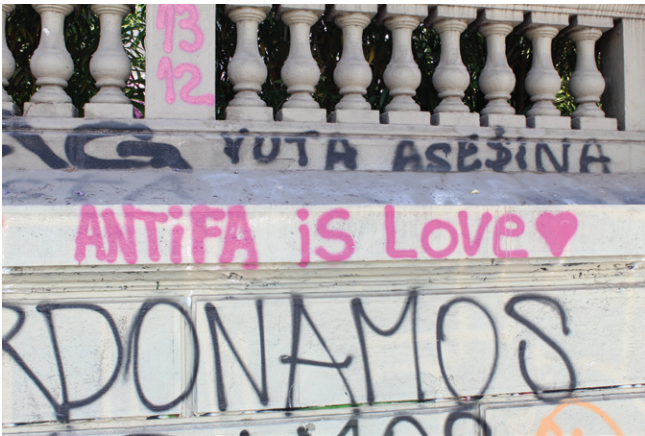 13
12
YUTA ASESINA
ANTiFA iS LOVe
RDONAMOS